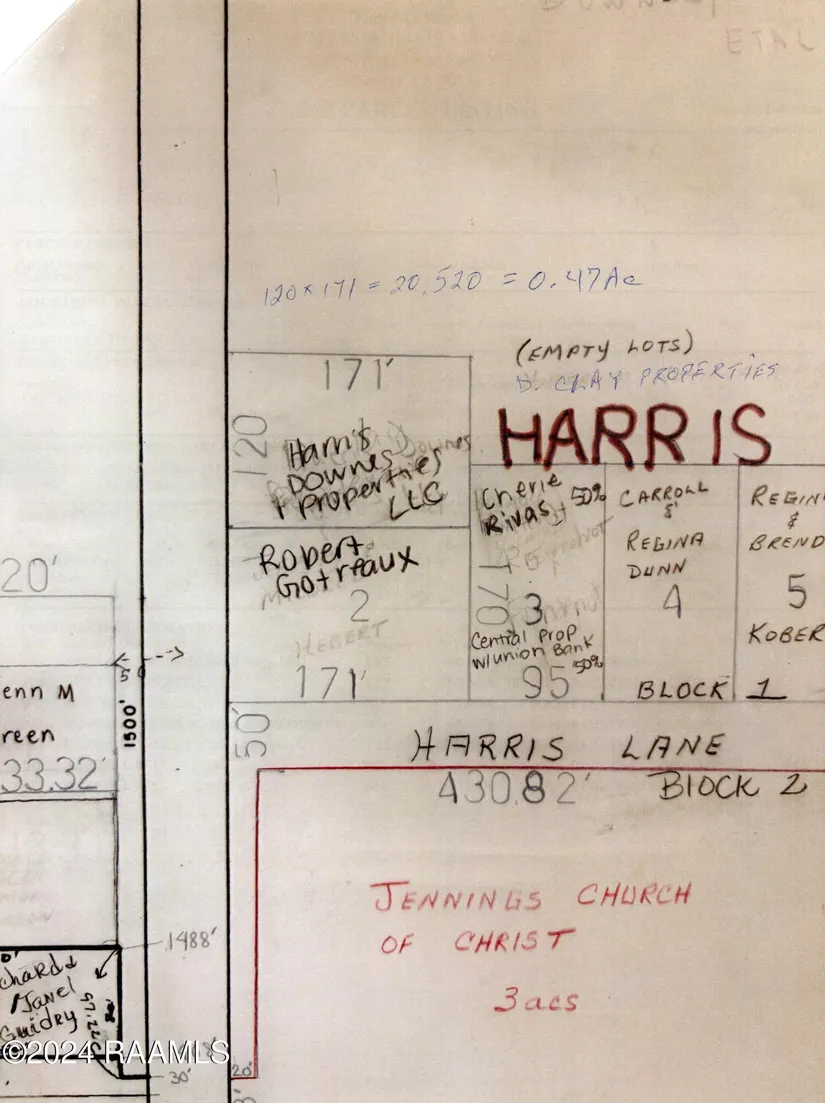 ETAL
120 x 171 = 20,520 = 0.47Ac
(EMPTY LOTS)
D. CLAY PROPERTIES
HARRIS
171'
120
Harris
Downes
Properties
LLC
Cherie
Rivas
50%
170
3
Central Prop
w/union Bank
50%
95
CARROLL
&
REGINA
DUNN
4
BLOCK 1
REGIN
&
BREND
5
KOBER
Robert
Gotreaux
2
HEBERT
171'
20'
50
enn M
reen
1500'
33.32'
50'
HARRIS LANE
430.82'
BlOCK 2
JENNINGS CHURCH
OF CHRIST
3 acs
1488'
chard &
Janel
Guidry
30'
20'
©2024 RAAMLS